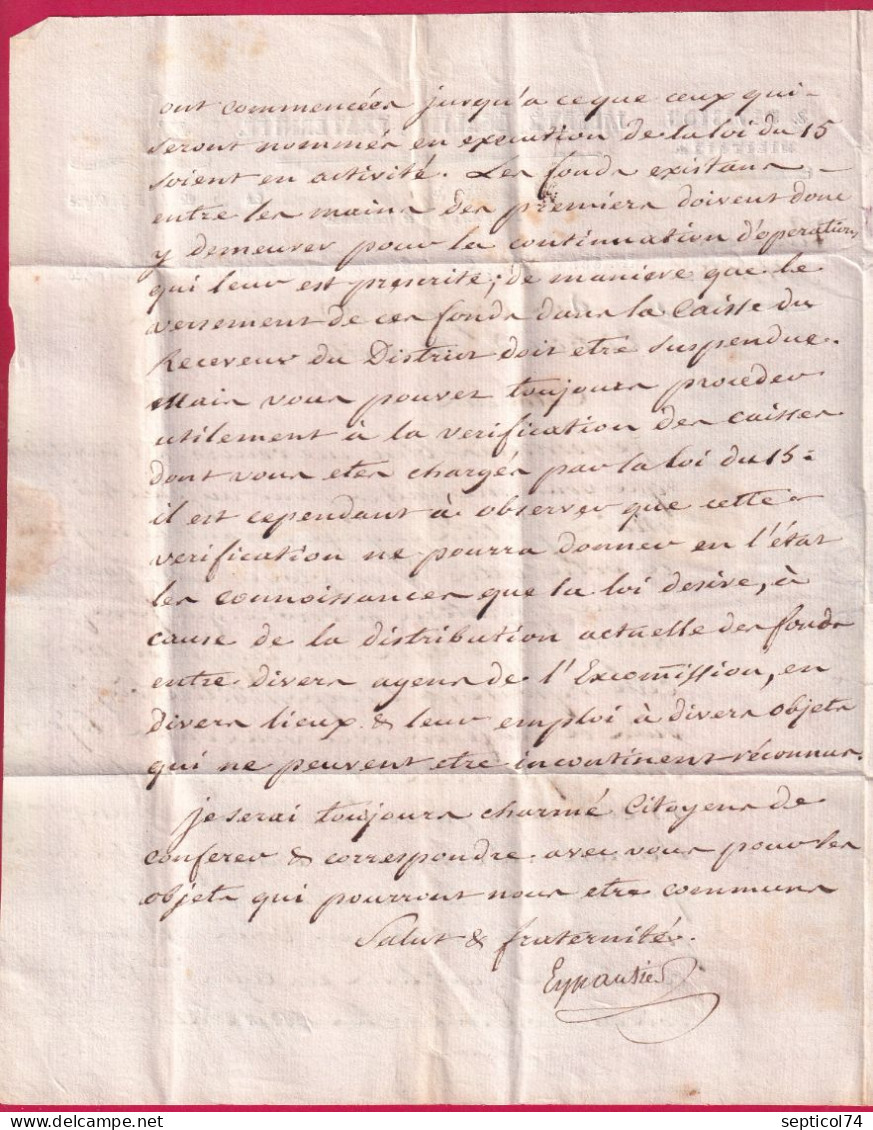 ont commencées jusqu'a ceque ceux qui-
seront nommés en execution de la loi du 15
soient en activité. Les fonds existans
entre les mains des premiers doivent donc
y demeurer pour la continuation d'operations
qui leur est prescrite; de maniere que le
versement de ces fonds dans la Caisse du
Receveur du District doit etre suspendue.
Mais vous pouvez toujours proceder
utilement à la verification des caisses
dont vous etes chargés par la loi du 15.
il est cependant à observer que cette
verification ne pourra donner en l'état
les connoissances que la loi desire, à
cause de la distribution actuelle des fonds
entre divers agens de l'Excomission, en
divers lieux & leur emploi à divers objets
qui ne peuvent etre incontinent réconnus.
je serai toujours charmé Citoyens de
conferer & correspondre avec vous pour les
objets qui pourront nous etre communs
Salut & fraternité.
septicol74